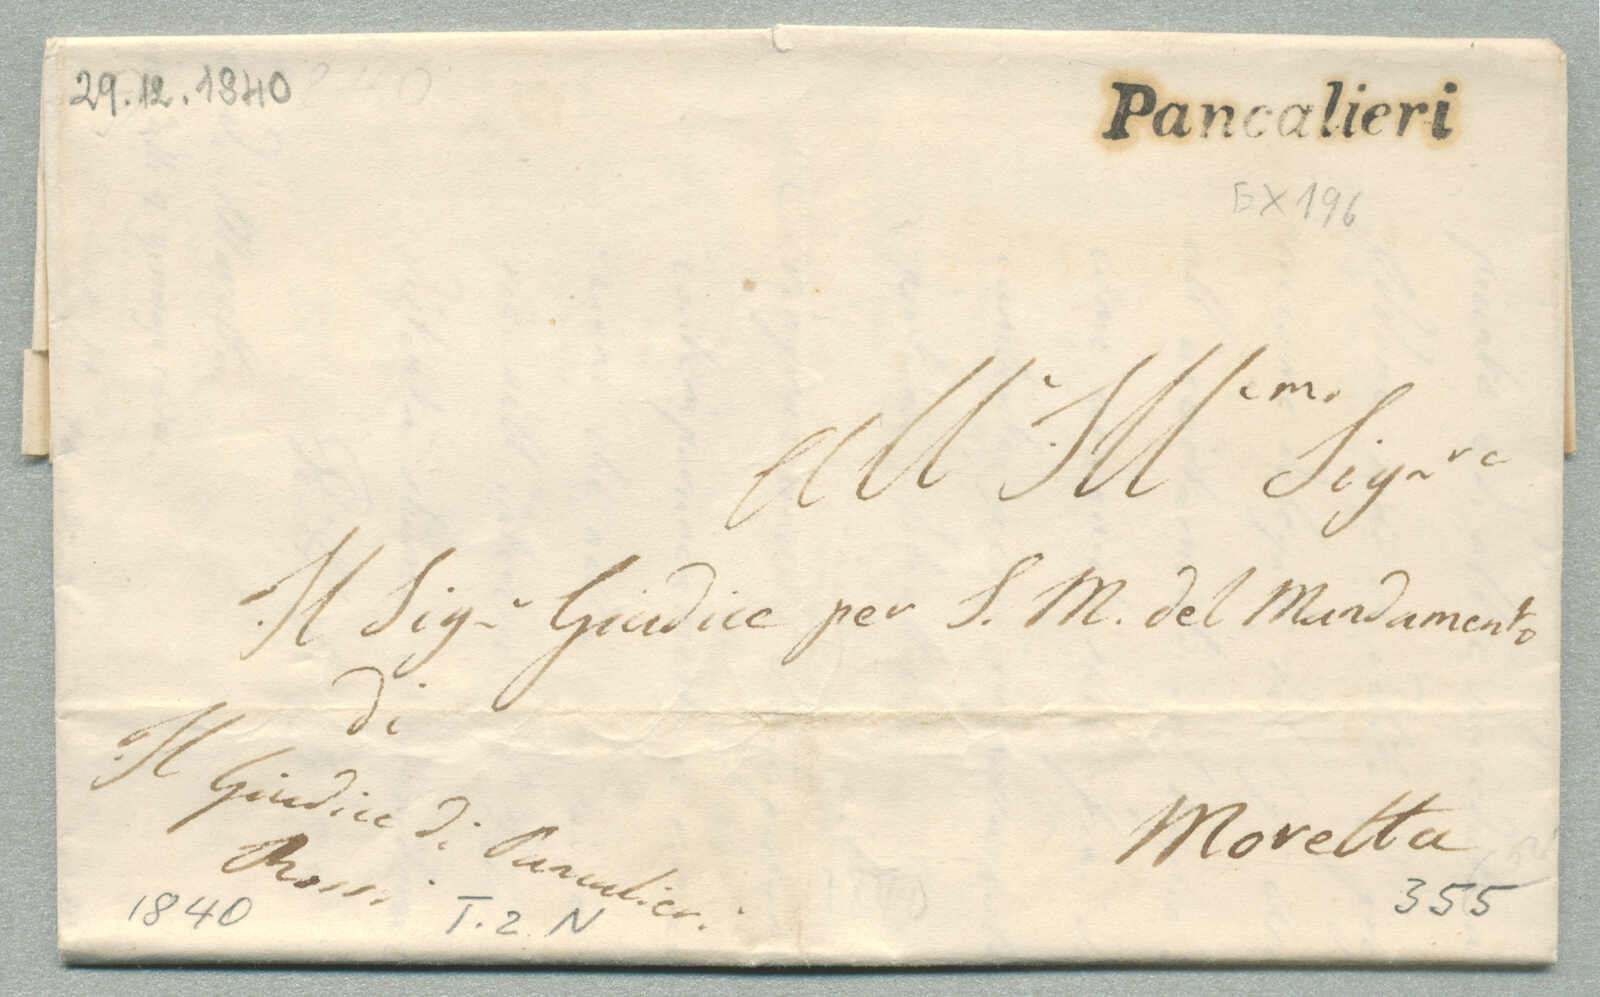 29.12.1840
Pancalieri
EX196
All' Ill.mo Sig.re
Il Sig.r Giudice per S. M. del Mandamento
di
Moretta
Il Giudice di Pancalieri
Rossi
1840
T. 2 N
355